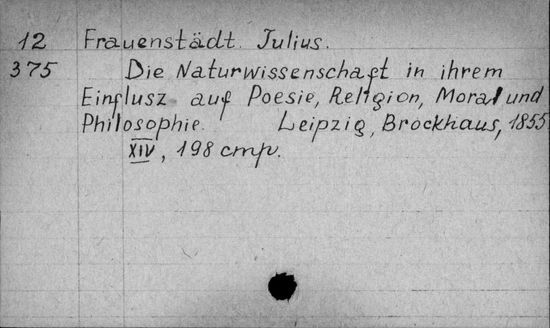 12 Frauenstädt Julius.
375 Die Naturwissenschaft in ihrem
Einflusz auf Poesie, Religion, Moral und
Philosophie. Leipzig, Brockhaus, 1855
XIV, 198 стр.